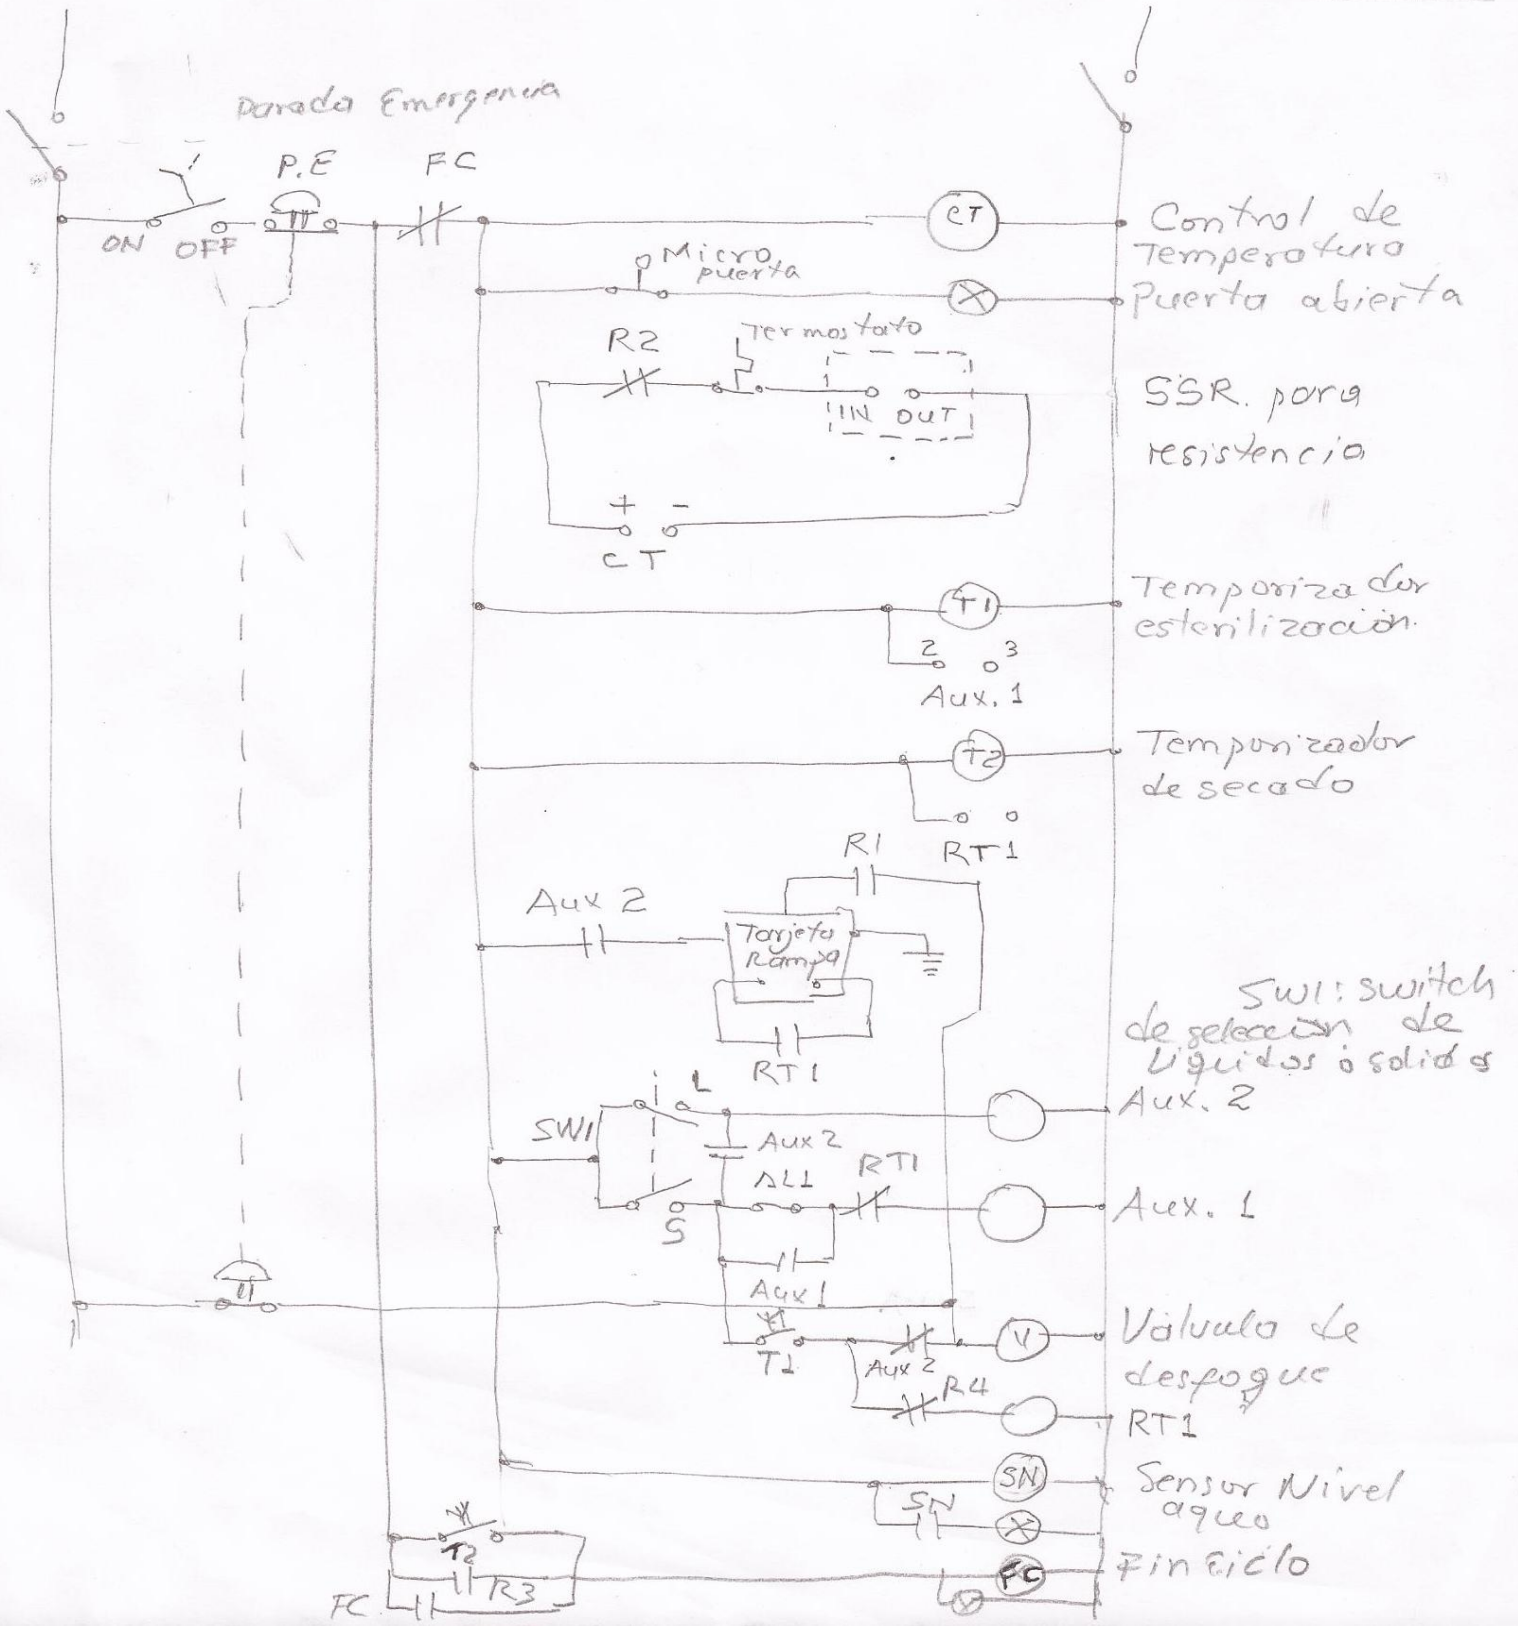 Parada Emergencia
P.E
FC
ON
OFF
CT
Control de
Temperatura
Micro
puerta
Puerta abierta
R2
Termostato
IN OUT
SSR. para
resistencia
+ -
CT
T1
Temporizador
esterilización.
2 3
Aux. 1
T2
Temporizador
de secado
RT1
R1
Aux 2
Tarjeta
Rampa
RT1
SW1: switch
de selección de
Líquidos o solidos
L
SW1
Aux 2
Aux. 2
AL1
RT1
S
Aux. 1
Aux 1
T1
Aux 2
V
Válvula de
desfogue
R4
RT1
SN
Sensor Nivel
agua
SN
T2
R3
FC
FC
Fin Ciclo